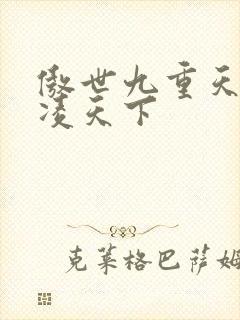 傲世九重天
凌天下
克莱格巴萨姆